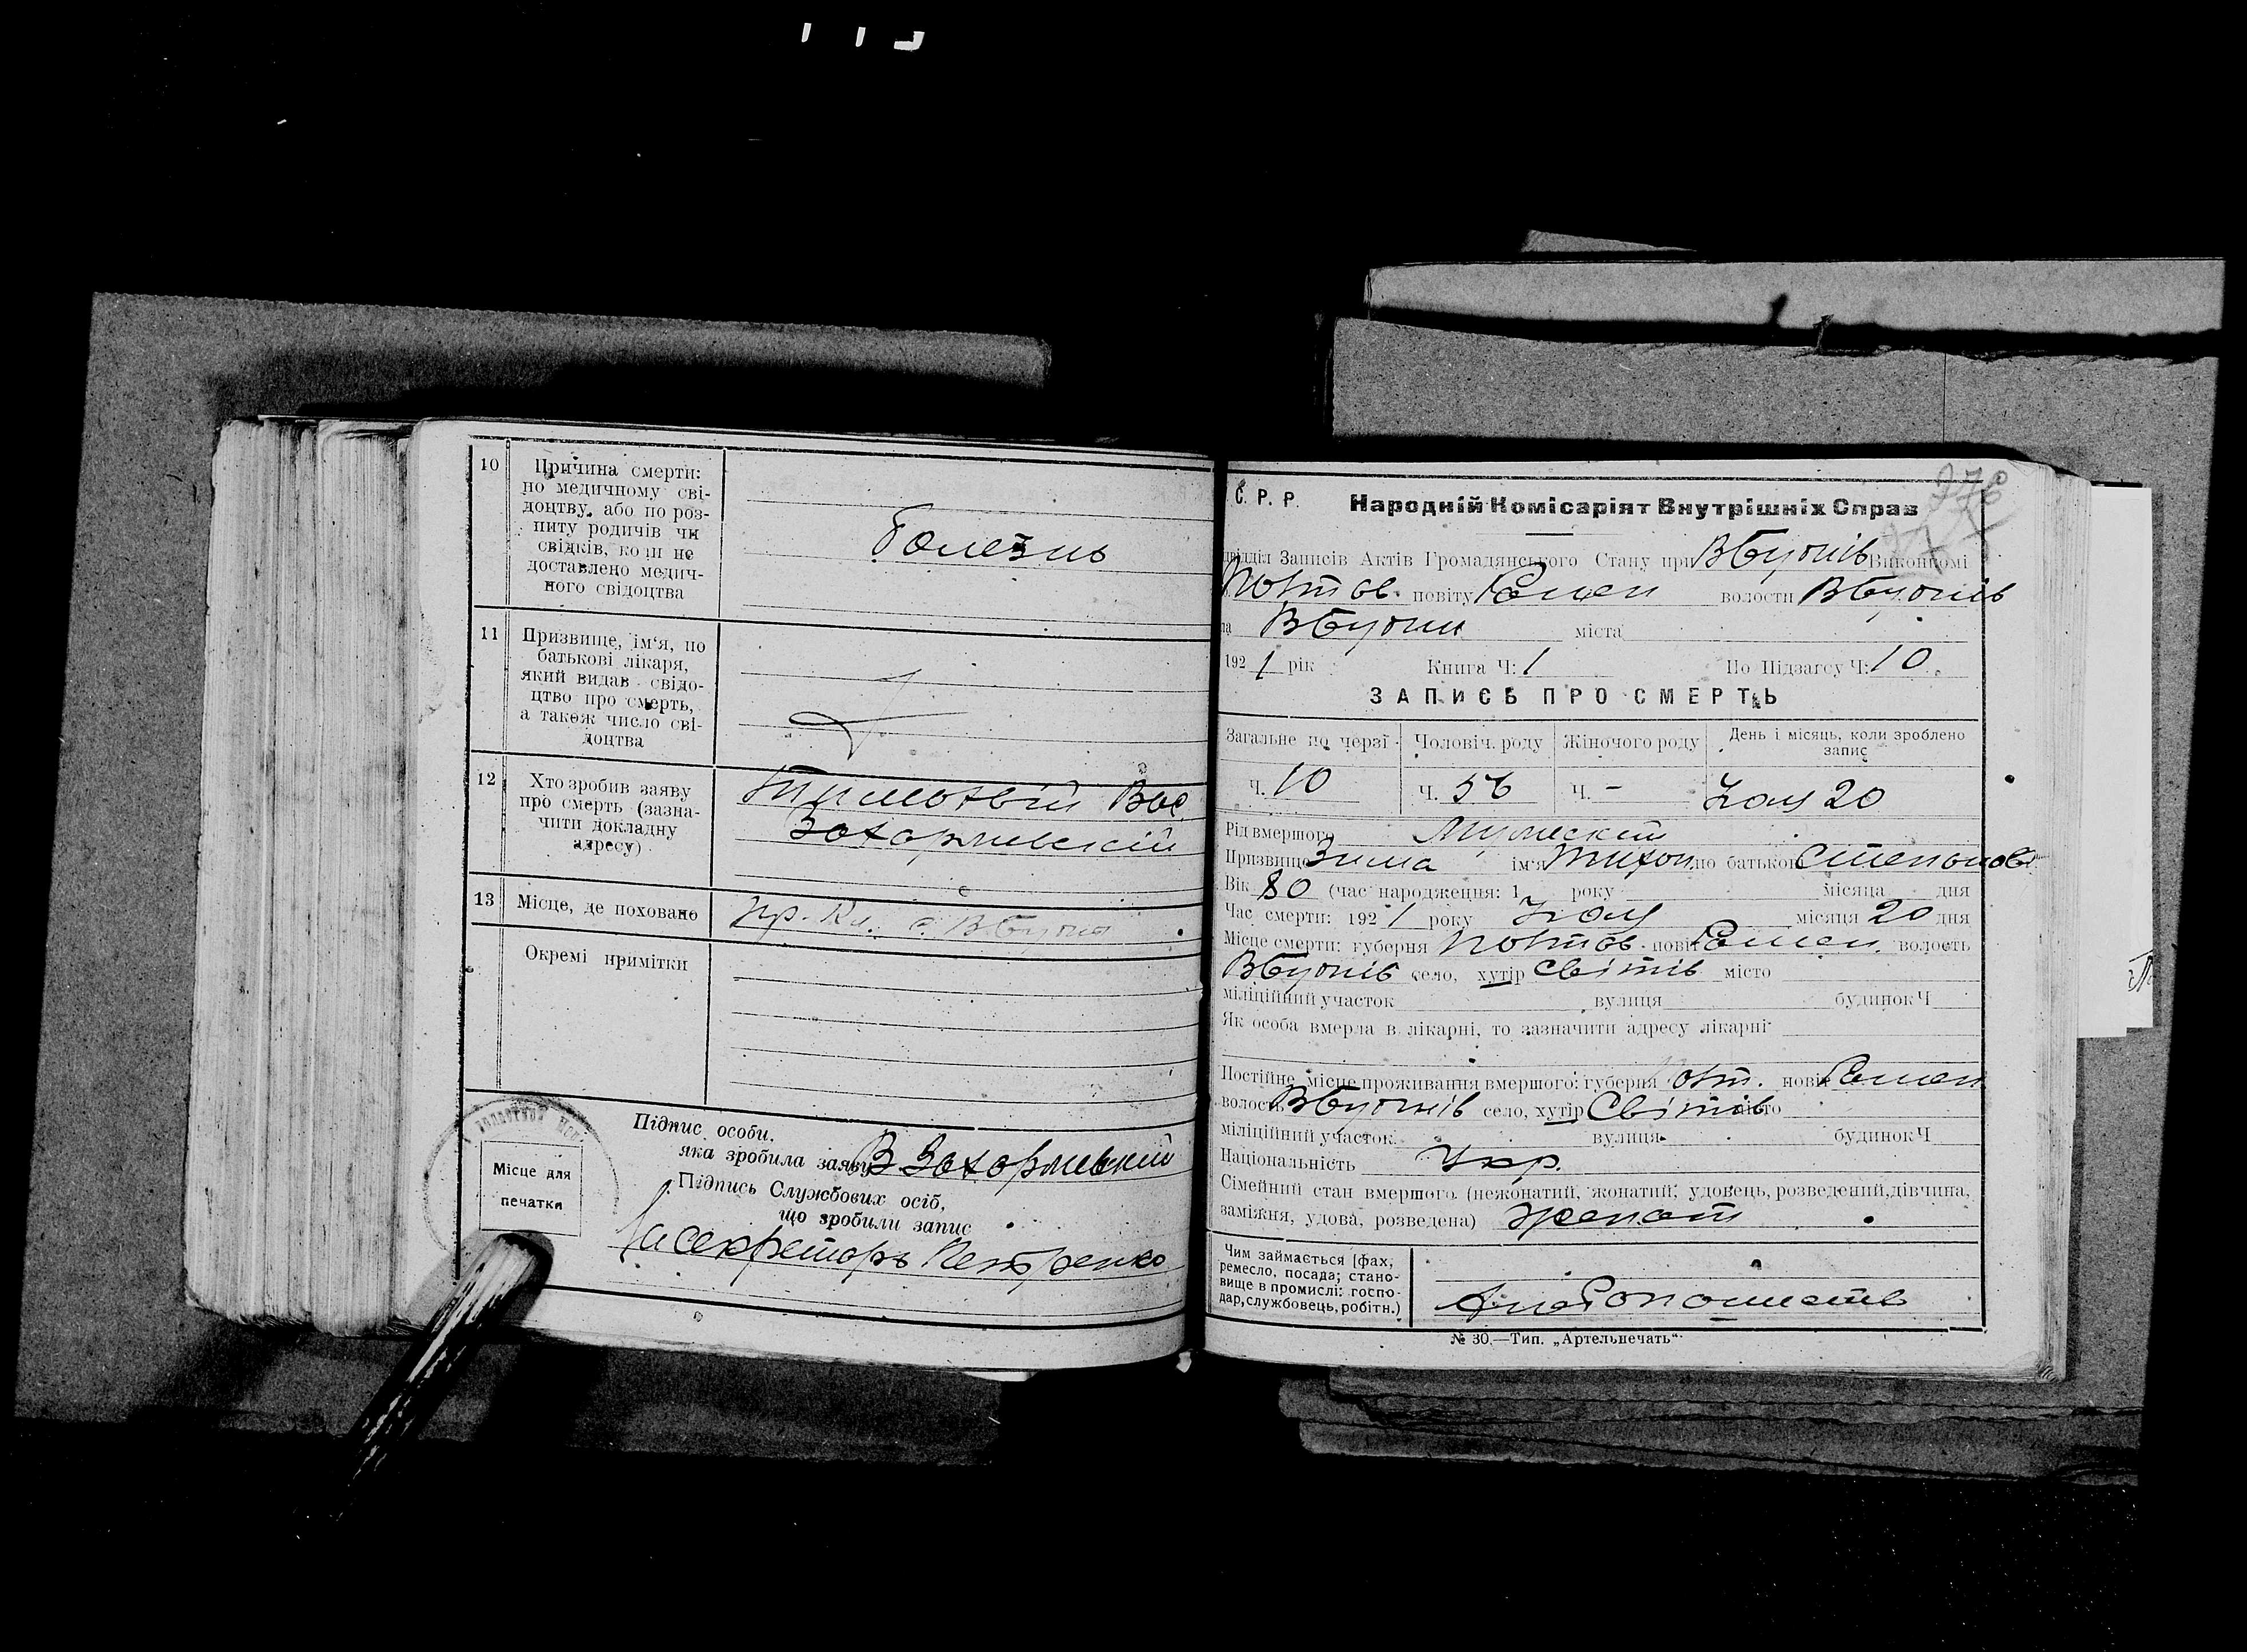 10
Причина смерти:
по медичному сві-
доцтву, або по роз-
питу родичів чи
свідків, коли не
доставлено медич-
ного свідоцтва
Болезнь
11
Призвище, ім‘я, по
батькові лікаря,
який видав свідо-
цтво про смерть,
а також число сві-
доцтва
12
Хто зробив заяву
про смерть (зазна-
чити докладну
адресу)
Вас
13
Місце, де поховано
Окремі примітки
Місце для
печатки
Підпис особи,
яка зробила заяву
Підпись Службових осіб,
що зробили запис
секретарь Петренко
С. Р. Р. Народній Комісаріят Внутрішніх Справ
Записів Актів Громадянського Стану при Виконкомі
Полтав. повіту Ромен волости
міста
1921 рік Книга Ч: 1 По Підзагсу Ч: 10
ЗАПИСЬ ПРО СМЕРТЬ
Загальне по черзі Чоловіч. роду Жіночого роду День і місяць, коли зроблено
запис
Ч. 10 Ч. 56 Ч. - 20
Рід вмершого Мужеский
Призвище Зима ім‘я Тихон по батькові Степанов
Вік 80 (час народження: 1 року місяця дня
Час смерти: 1921 року місяця 20 дня
Місце смерти: губерня Полтав. повіт Ромен. волость
село, хутір Світів місто
міліційний участок вулиця будинок Ч
Як особа вмерла в лікарні, то зазначити адресу лікарні
Постійне місце проживання вмершого: губерня Полт. повіт Ромен
волость село, хутір Світів місто
міліційний участок вулиця будинок Ч
Національність Укр.
Сімейний стан вмершого (нежонатий, жонатий, удовець, розведений, дівчина,
заміжня, удова, розведена) Женат
Чим займається [фах,
ремесло, посада; стано-
вище в промислі: госпо-
дар, службовець, робітн.)
Хлебопашеств
№ 30.—Тип. „Артельпечать“